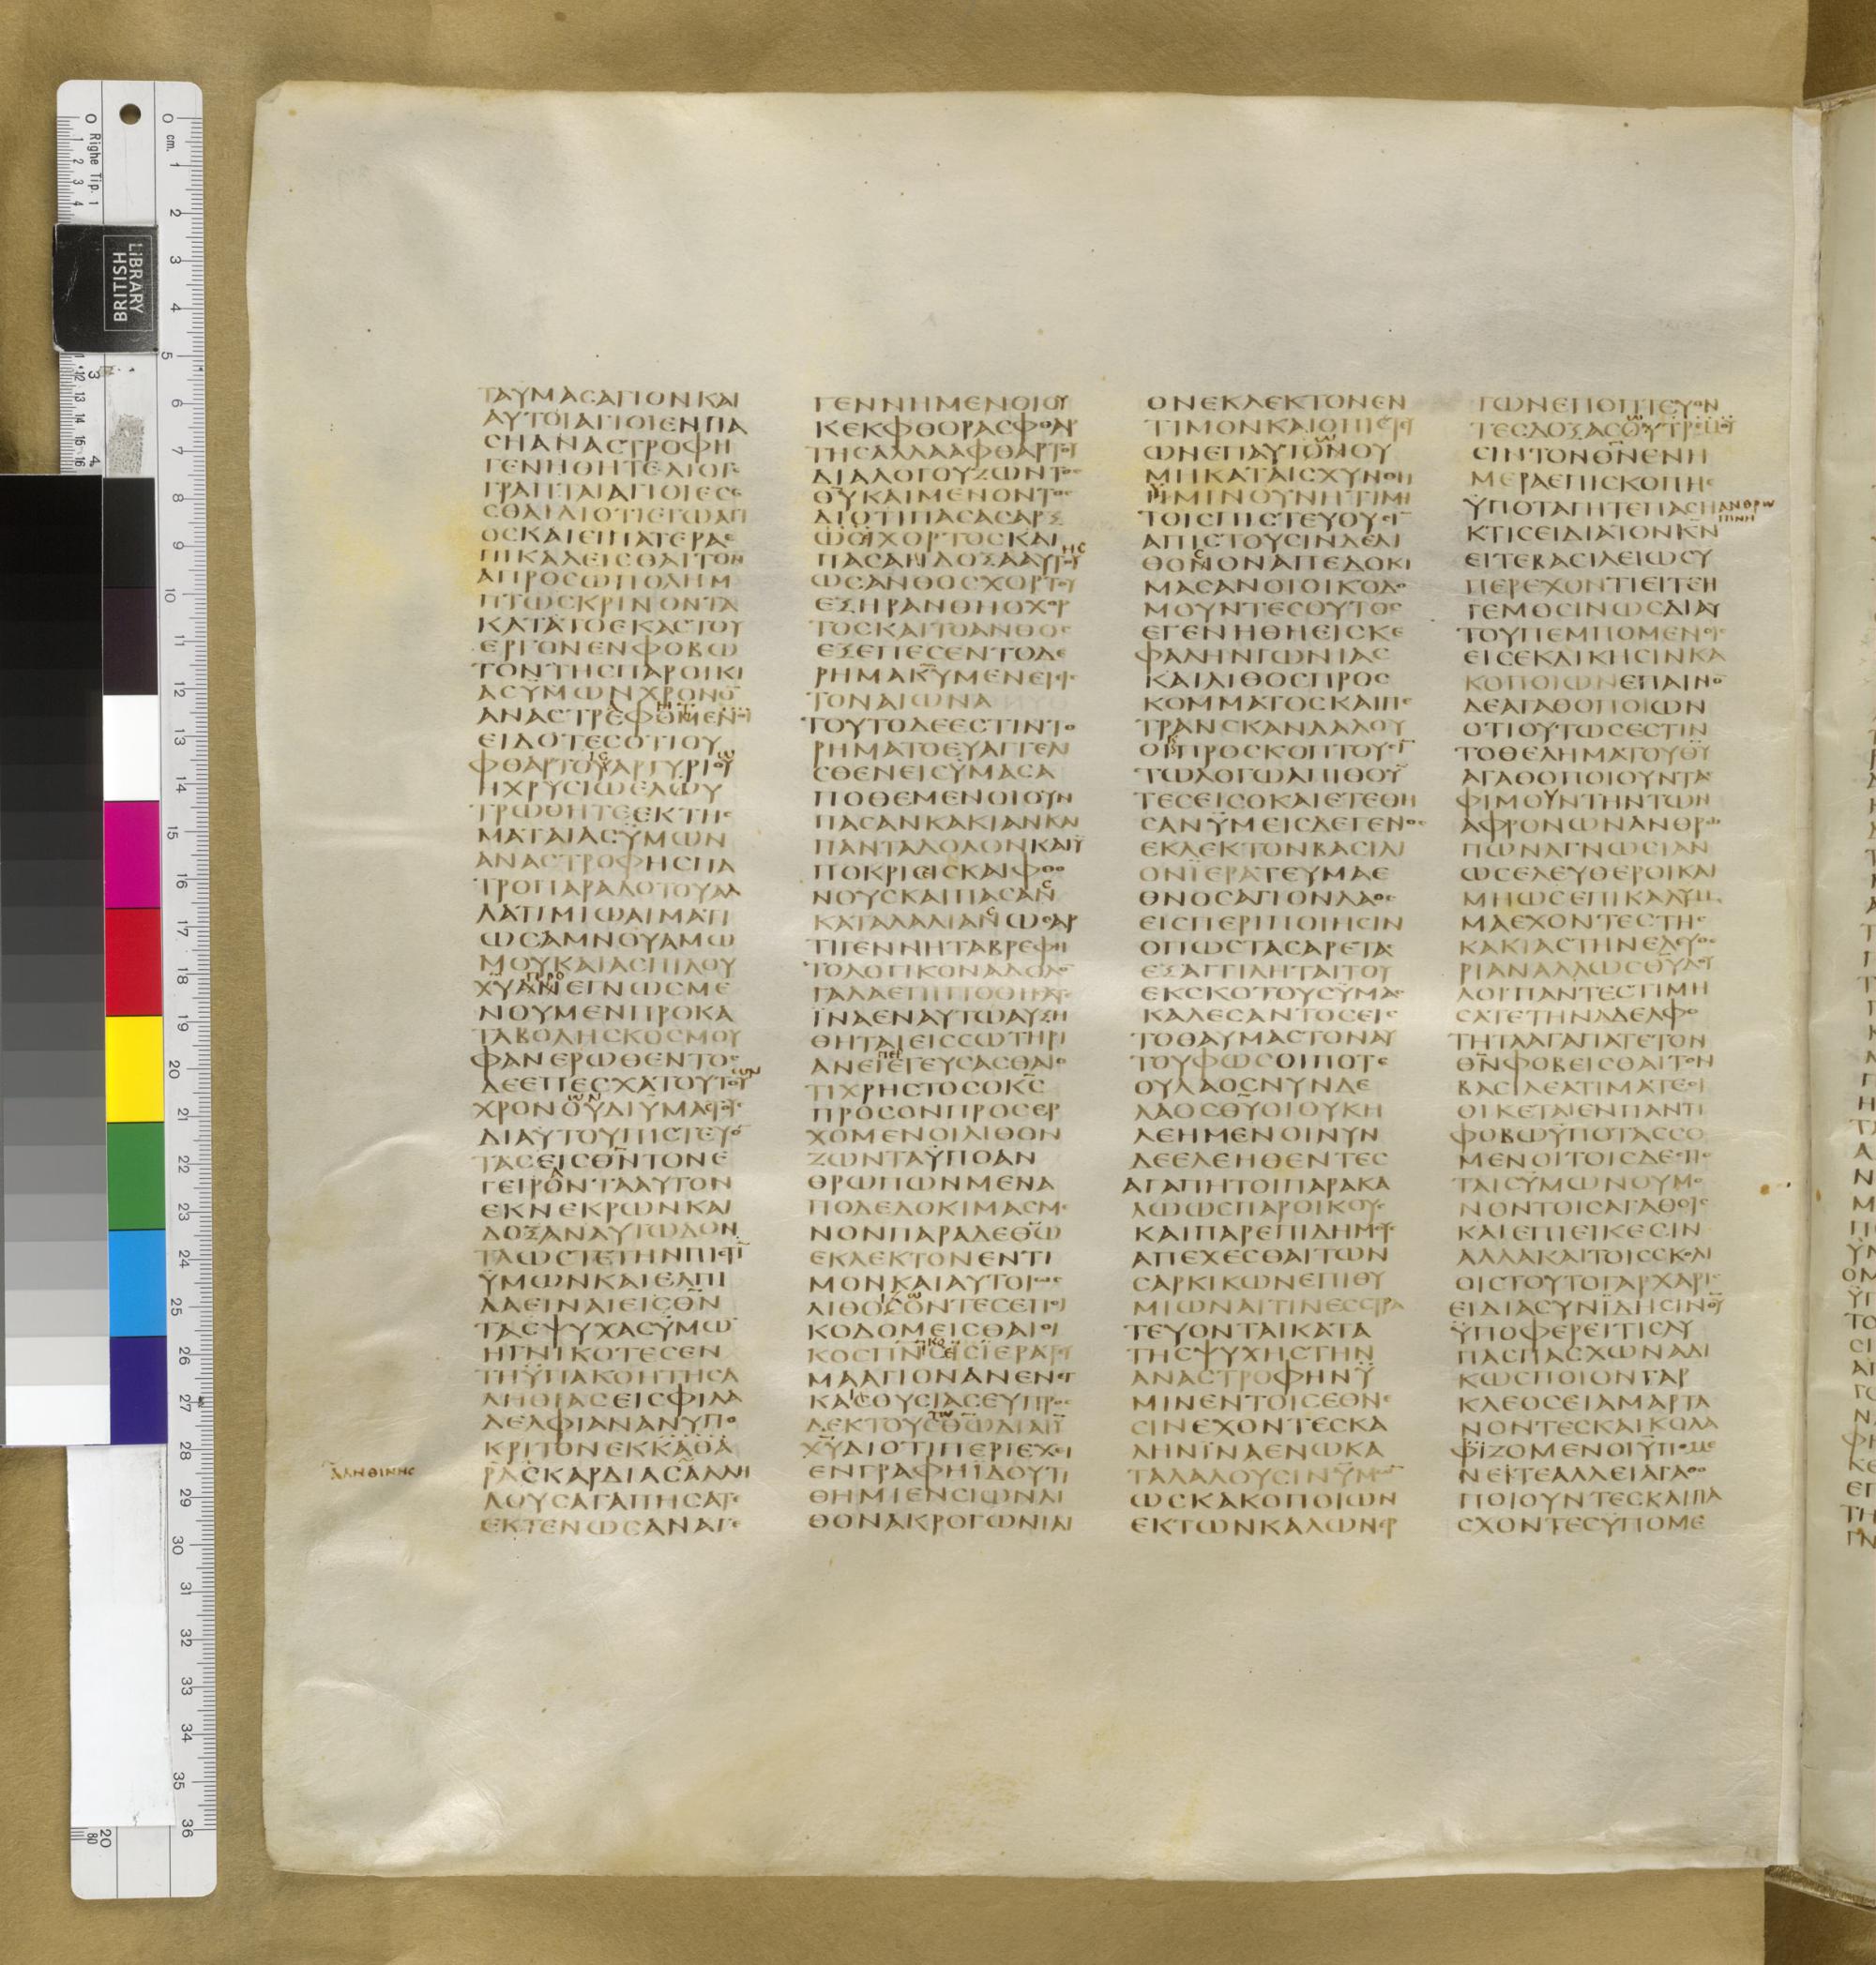 ΤΑΥΜΑCΑΓΙΟΝΚΑΙ
ΑΥΤΟΙΑΓΙΟΙΕΝΠΑ
CΗΑΝΑCΤΡΟΦΗ
ΓΕΝΗΘΗΤΕΔΙΟΓΕ
ΓΡΑΠΤΑΙΑΓΙΟΙΕCΕ
CΘΑΙΔΙΟΤΙΕΓΩΑΓΙ
ΟCΚΑΙΕΙΠΑΤΕΡΑΕ
ΠΙΚΑΛΕΙCΘΑΙΤΟΝ
ΑΠΡΟCΩΠΟΛΗΜ
ΠΤΩCΚΡΙΝΟΝΤΑ
ΚΑΤΑΤΟΕΚΑCΤΟΥ
ΕΡΓΟΝΕΝΦΟΒΩ
ΤΟΝΤΗCΠΑΡΟΙΚΙ
ΑCΫΜΩΝΧΡΟΝΟ̅
ΑΝΑCΤΡΕΦΟΜΕΝΟΙ
ΕΙΔΟΤΕCΟΤΙΟΥ
ΦΘΑΡΤΟΥΑΡΓΥΡΙΟΥ
ΗΧΡΥCΙΩΕΛΩΥ
ΤΡΩΘΗΤΕΕΚΤΗC
ΜΑΤΑΙΑCΫΜΩΝ
ΑΝΑCΤΡΟΦΗCΠΑ
ΤΡΟΠΑΡΑΔΟΤΟΥΑΛ
ΛΑΤΙΜΙΩΑΙΜΑΤΙ
ΩCΑΜΝΟΥΑΜΩ
ΜΟΥΚΑΙΑCΠΙΛΟΥ
ΠΡΟ
Χ̅Υ̅ΑΝΕΓΝΩCΜΕ
ΝΟΥΜΕΝΠΡΟΚΑ
ΤΑΒΟΛΗCΚΟCΜΟΥ
ΦΑΝΕΡΩΘΕΝΤΟC
ΔΕΕΠΕCΧΑΤΟΥΤΟΥ
ΧΡΟΝΟΥΔΙΫΜΑC
ΔΙΑΥΤΟΥΠΙCΤΕΥΟ̅
ΤΑCΕΙCΘ̅Ν̅ΤΟΝΕ
ΓΕΙΡΟΝΤΑΑΥΤΟΝ
ΕΚΝΕΚΡΩΝΚΑΙ
ΔΟΞΑΝΑΥΤΩΔΟΝ
ΤΑΩCΤΕΤΗΝΠΙCΤΙ̅
ΫΜΩΝΚΑΙΕΛΠΙ
ΔΑΕΙΝΑΙΕΙCΘ̅Ν̅
ΤΑCΨΥΧΑCΫΜΩ̅
ΗΓΝΙΚΟΤΕCΕΝ
ΤΗΫΠΑΚΟΗΤΗCΑ
ΛΗΘΙΑCΕΙCΦΙΛΑ
ΔΕΛΦΙΑΝΑΝΥΠΟ
ΚΡΙΤΟΝΕΚΚΑΘΑ
ΑΛΗΘΙΝΗC
ΡΑCΚΑΡΔΙΑCΑΛΛΗ
ΛΟΥCΑΓΑΠΗCΑΤΕ
ΕΚΤΕΝΩCΑΝΑΓΕ
ΓΕΝΝΗΜΕΝΟΙΟΥ
ΚΕΚΦΘΟΡΑCΦΘΑΡ
ΤΗCΑΛΛΑΑΦΘΑΡΤΟΥ
ΔΙΑΛΟΓΟΥΖΩΝΤΟC
Θ̅Υ̅ΚΑΙΜΕΝΟΝΤΟC
ΔΙΟΤΙΠΑCΑCΑΡΞ
ΩCΙΧΟΡΤΟCΚΑΙ
ΠΑCΑΗΔΟΞΑΑΥΤΟΥ
ΩCΑΝΘΟCΧΟΡΤΟΥ
ΕΞΗΡΑΝΘΗΟΧΟΡ
ΤΟCΚΑΙΤΟΑΝΘΟC
ΕΞΕΠΕCΕΝΤΟΔΕ
ΡΗΜΑΚ̅Υ̅ΜΕΝΕΙΕΙC
ΤΟΝΑΙΩΝΑ
ΤΟΥΤΟΔΕΕCΤΙΝΤΟ
ΡΗΜΑΤΟΕΥΑΓΓΕΛ
CΘΕΝΕΙCΫΜΑCΑ
ΠΟΘΕΜΕΝΟΙΟΥΝ
ΠΑCΑΝΚΑΚΙΑΝΚΑΙ
ΠΑΝΤΑΔΟΛΟΝΚΑΙΫ
ΠΟΚΡΙCΙCΚΑΙΦΘΟ
ΝΟΥCΚΑΙΠΑCΑΝ
ΚΑΤΑΛΑΛΙΑΝΩCΑΡ
ΤΙΓΕΝΝΗΤΑΒΡΕΦΗ
ΤΟΛΟΓΙΚΟΝΑΔΟΛΟ̅
ΓΑΛΑΕΠΙΠΟΘΗCΑΤΕ
ΪΝΑΕΝΑΥΤΩΑΥΞΗ
ΘΗΤΑΙΕΙCCΩΤΗΡΙ
ΑΝΕΙΕΓΕΥCΑCΘΑΙΟ
ΤΙΧΡΗCΤΟCΟΚ̅C̅
ΠΡΟCΟΝΠΡΟCΕΡ
ΧΟΜΕΝΟΙΛΙΘΟΝ
ΖΩΝΤΑΫΠΟΑΝ
ΘΡΩΠΩΝΜΕΝΑ
ΠΟΔΕΔΟΚΙΜΑCΜΕ
ΝΟΝΠΑΡΑΔΕΘ̅Ω̅
ΕΚΛΕΚΤΟΝΕΝΤΙ
ΜΟΝΚΑΙΑΥΤΟΙΩC
ΛΙΘΟΙΖΟΝΤΕCΕΠΟΙ
ΚΟΔΟΜΕΙCΘΑΙΟΙ
ΚΟCΠΝ̅ΙCΕΙCΪΕΡΑΤΕΥ
ΜΑΑΓΙΟΝΑΝΕΝΕΓ
ΚΑΙΘΥCΙΑCΕΥΠΡΟC
ΔΕΚΤΟΥCΘ̅Ω̅ΔΙΑΪ̅
Χ̅Υ̅ΔΙΟΤΙΠΕΡΙΕΧΕΙ
ΕΝΓΡΑΦΗΪΔΟΥΤΙ
ΘΗΜΙΕΝCΙΩΝΛΙ
ΘΟΝΑΚΡΟΓΩΝΙΑΙ
ΟΝΕΚΛΕΚΤΟΝΕΝ
ΤΙΜΟΝΚΑΙΟΠΙCΤΕΥ
ΩΝΕΠΑΥΤΟΝΟΥ
ΜΗΚΑΤΑΙCΧΥΝΘΗ
ΫΜΙΝΟΥΝΗΤΙΜΗ
ΤΟΙCΠΙCΤΕΥΟΥCΙ̅
ΑΠΙCΤΟΥCΙΝΔΕΛΙ
ΘΟΝΟΝΑΠΕΔΟΚΙ
ΜΑCΑΝΟΙΟΙΚΟΔΟ
ΜΟΥΝΤΕCΟΥΤΟC
ΕΓΕΝΗΘΗΕΙCΚΕ
ΦΑΛΗΝΓΩΝΙΑC
ΚΑΙΛΙΘΟCΠΡΟC
ΚΟΜΜΑΤΟCΚΑΙΠΕ
ΤΡΑΝCΚΑΝΔΑΛΟΥ
ΟΙΠΡΟCΚΟΠΤΟΥCΙ̅
ΤΩΛΟΓΩΑΠΙΘΟΥ̅
ΤΕCΕΙCΟΚΑΙΕΤΕΘΗ
CΑΝΫΜΕΙCΔΕΓΕΝΟC
ΕΚΛΕΚΤΟΝΒΑCΙΛΙ
ΟΝΪΕΡΑΤΕΥΜΑΕ
ΘΝΟCΑΓΙΟΝΛΑΟC
ΕΙCΠΕΡΙΠΟΙΗCΙΝ
ΟΠΩCΤΑCΑΡΕΤΑC
ΕΞΑΓΓΙΛΗΤΑΙΤΟΥ
ΕΚCΚΟΤΟΥCΫΜΑC
ΚΑΛΕCΑΝΤΟCΕΙC
ΤΟΘΑΥΜΑCΤΟΝΑΥ
ΤΟΥΦΩCΟΙΠΟΤΕ
ΟΥΛΑΟCΝΥΝΔΕ
ΛΑΟCΘ̅Υ̅ΟΙΟΥΚΗ
ΛΕΗΜΕΝΟΙΝΥΝ
ΔΕΕΛΕΗΘΕΝΤΕC
ΑΓΑΠΗΤΟΙΠΑΡΑΚΑ
ΛΩΩCΠΑΡΟΙΚΟΥC
ΚΑΙΠΑΡΕΠΙΔΗΜΟΥC
ΑΠΕΧΕCΘΑΙΤΩΝ
CΑΡΚΙΚΩΝΕΠΙΘΥ
ΜΙΩΝΑΙΤΙΝΕCCΤΡΑ
ΤΕΥΟΝΤΑΙΚΑΤΑ
ΤΗCΨΥΧΗCΤΗΝ
ΑΝΑCΤΡΟΦΗΝΫ
ΜΙΝΕΝΤΟΙCΕΘΝΕ
CΙΝΕΧΟΝΤΕCΚΑ
ΛΗΝΪΝΑΕΝΩΚΑ
ΤΑΛΑΛΟΥCΙΝΫΜΩ̅
ΩCΚΑΚΟΠΟΙΩΝ
ΕΚΤΩΝΚΑΛΩΝΕΡ
ΓΩΝΕΠΟΠΤΕΥΟΝ
ΤΕCΔΟΞΑCΟΥΤΡΕΜΟΥ
CΙΝΤΟΝΘ̅Ν̅ΕΝΗ
ΜΕΡΑΕΠΙCΚΟΠΗC
ΫΠΟΤΑΓΗΤΕΠΑCΗ
ΑΝΘΡΩ
ΠΙΝΗ
ΚΤΙCΕΙΔΙΑΤΟΝΚ̅Ν̅
ΕΙΤΕΒΑCΙΛΕΙΩCΥ
ΠΕΡΕΧΟΝΤΙΕΙΤΕΗ
ΓΕΜΟCΙΝΩCΔΙΑΥ
ΤΟΥΠΕΜΠΟΜΕΝΟΙC
ΕΙCΕΚΔΙΚΗCΙΝΚΑ
ΚΟΠΟΙΩΝΕΠΑΙΝΟ̅
ΔΕΑΓΑΘΟΠΟΙΩΝ
ΟΤΙΟΥΤΩCΕCΤΙΝ
ΤΟΘΕΛΗΜΑΤΟΥΘ̅Υ̅
ΑΓΑΘΟΠΟΙΟΥΝΤΑC
ΦΙΜΟΥΝΤΗΝΤΩΝ
ΑΦΡΟΝΩΝΑΝΘΡΩ
ΠΩΝΑΓΝΩCΙΑΝ
ΩCΕΛΕΥΘΕΡΟΙΚΑΙ
ΜΗΩCΕΠΙΚΑΛΥΜ
ΜΑΕΧΟΝΤΕCΤΗC
ΚΑΚΙΑCΤΗΝΕΛΕΥΘΕ
ΡΙΑΝΑΛΛΩCΘ̅Υ̅ΔΟΥ
ΛΟΙΠΑΝΤΕCΤΙΜΗ
CΑΤΕΤΗΝΑΔΕΛΦΟ
ΤΗΤΑΑΓΑΠΑΤΕΤΟΝ
Θ̅Ν̅ΦΟΒΕΙCΘΑΙΤΟΝ
ΒΑCΙΛΕΑΤΙΜΑΤΕΟΙ
ΟΙΚΕΤΑΙΕΝΠΑΝΤΙ
ΦΟΒΩΫΠΟΤΑCCΟ
ΜΕΝΟΙΤΟΙCΔΕCΠΟ
ΤΑΙCΫΜΩΝΟΥΜΟ
ΝΟΝΤΟΙCΑΓΑΘΟΙC
ΚΑΙΕΠΙΕΙΚΕCΙΝ
ΑΛΛΑΚΑΙΤΟΙCCΚΟΛΙ
ΟΙCΤΟΥΤΟΓΑΡΧΑΡΙC
ΕΙΔΙΑCΥΝΪΔΗCΙΝΘ̅Υ̅
ΫΠΟΦΕΡΕΙΤΙCΛΥ
ΠΑCΠΑCΧΩΝΑΔΙ
ΚΩCΠΟΙΟΝΓΑΡ
ΚΛΕΟCΕΙΑΜΑΡΤΑ
ΝΟΝΤΕCΚΑΙΚΟΛΑ
ΦΙΖΟΜΕΝΟΙΫΠΟΜΕ
ΝΕΙΤΕΑΛΛΕΙΑΓΑΘΟ
ΠΟΙΟΥΝΤΕCΚΑΙΠΑ
CΧΟΝΤΕCΫΠΟΜΕ
BRITISH
LIBRARY